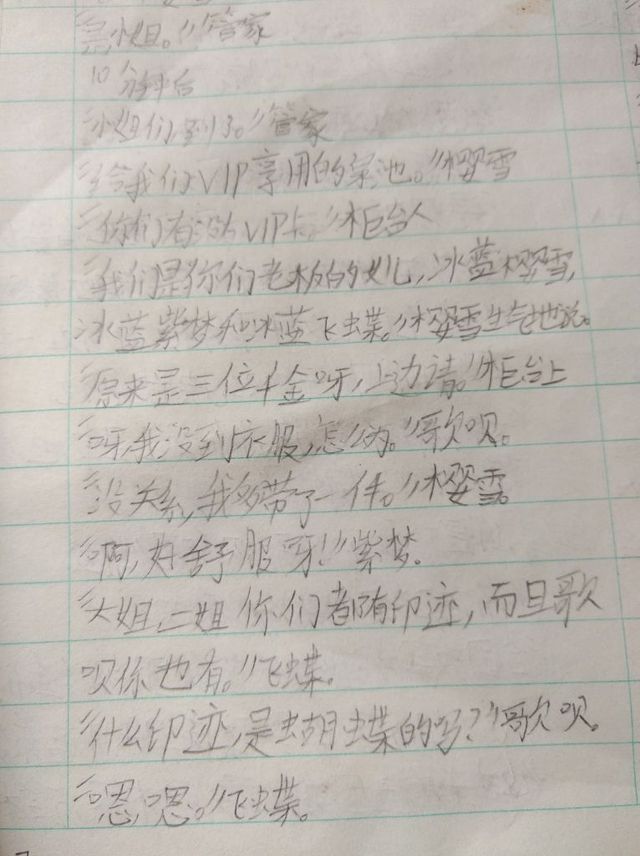 "是小姐。"管家
10分钟后
"小姐们,到了。"管家
"给我们VIP享用的浴池。"樱雪
"你们有没有VIP卡。"柜台人
"我们是你们老板的女儿,冰蓝樱雪,
冰蓝紫梦和冰蓝飞蝶。"樱雪生气地说。
"原来是三位千金呀,上边请。"柜台上
"呀,我没到衣服,怎么办。"歌呗。
"没关系,我多带了一件。"樱雪。
"啊,好舒服呀!"紫梦。
"大姐,二姐你们都有印迹,而且歌
呗你也有。"飞蝶。
"什么印迹,是蝴蝶的吗?"歌呗。
"嗯,嗯。"飞蝶。